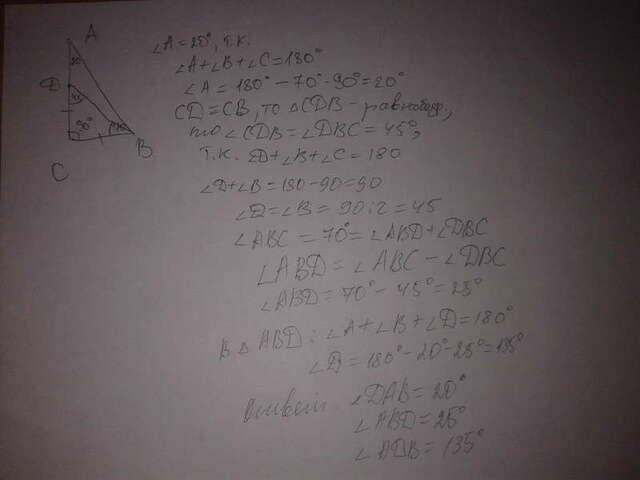 A
20
D
45
90°
C
B
∠A=20°, т.к.
∠A+∠B+∠C=180°
∠A=180°-70°-90°=20°
CD=CB, то △CDB-равнобедр.,
то ∠CDB=∠DBC=45°,
т.к. ∠D+∠B+∠C=180
∠D+∠B=180-90=90
∠D=∠B=90:2=45
∠ABC=70°=∠ABD+∠DBC
∠ABD=∠ABC-∠DBC
∠ABD=70°-45°=25°
В △ABD: ∠A+∠B+∠D=180°
∠D=180°-20°-25°=135°
Ответ: ∠DAB=20°
∠ABD=25°
∠ADB=135°